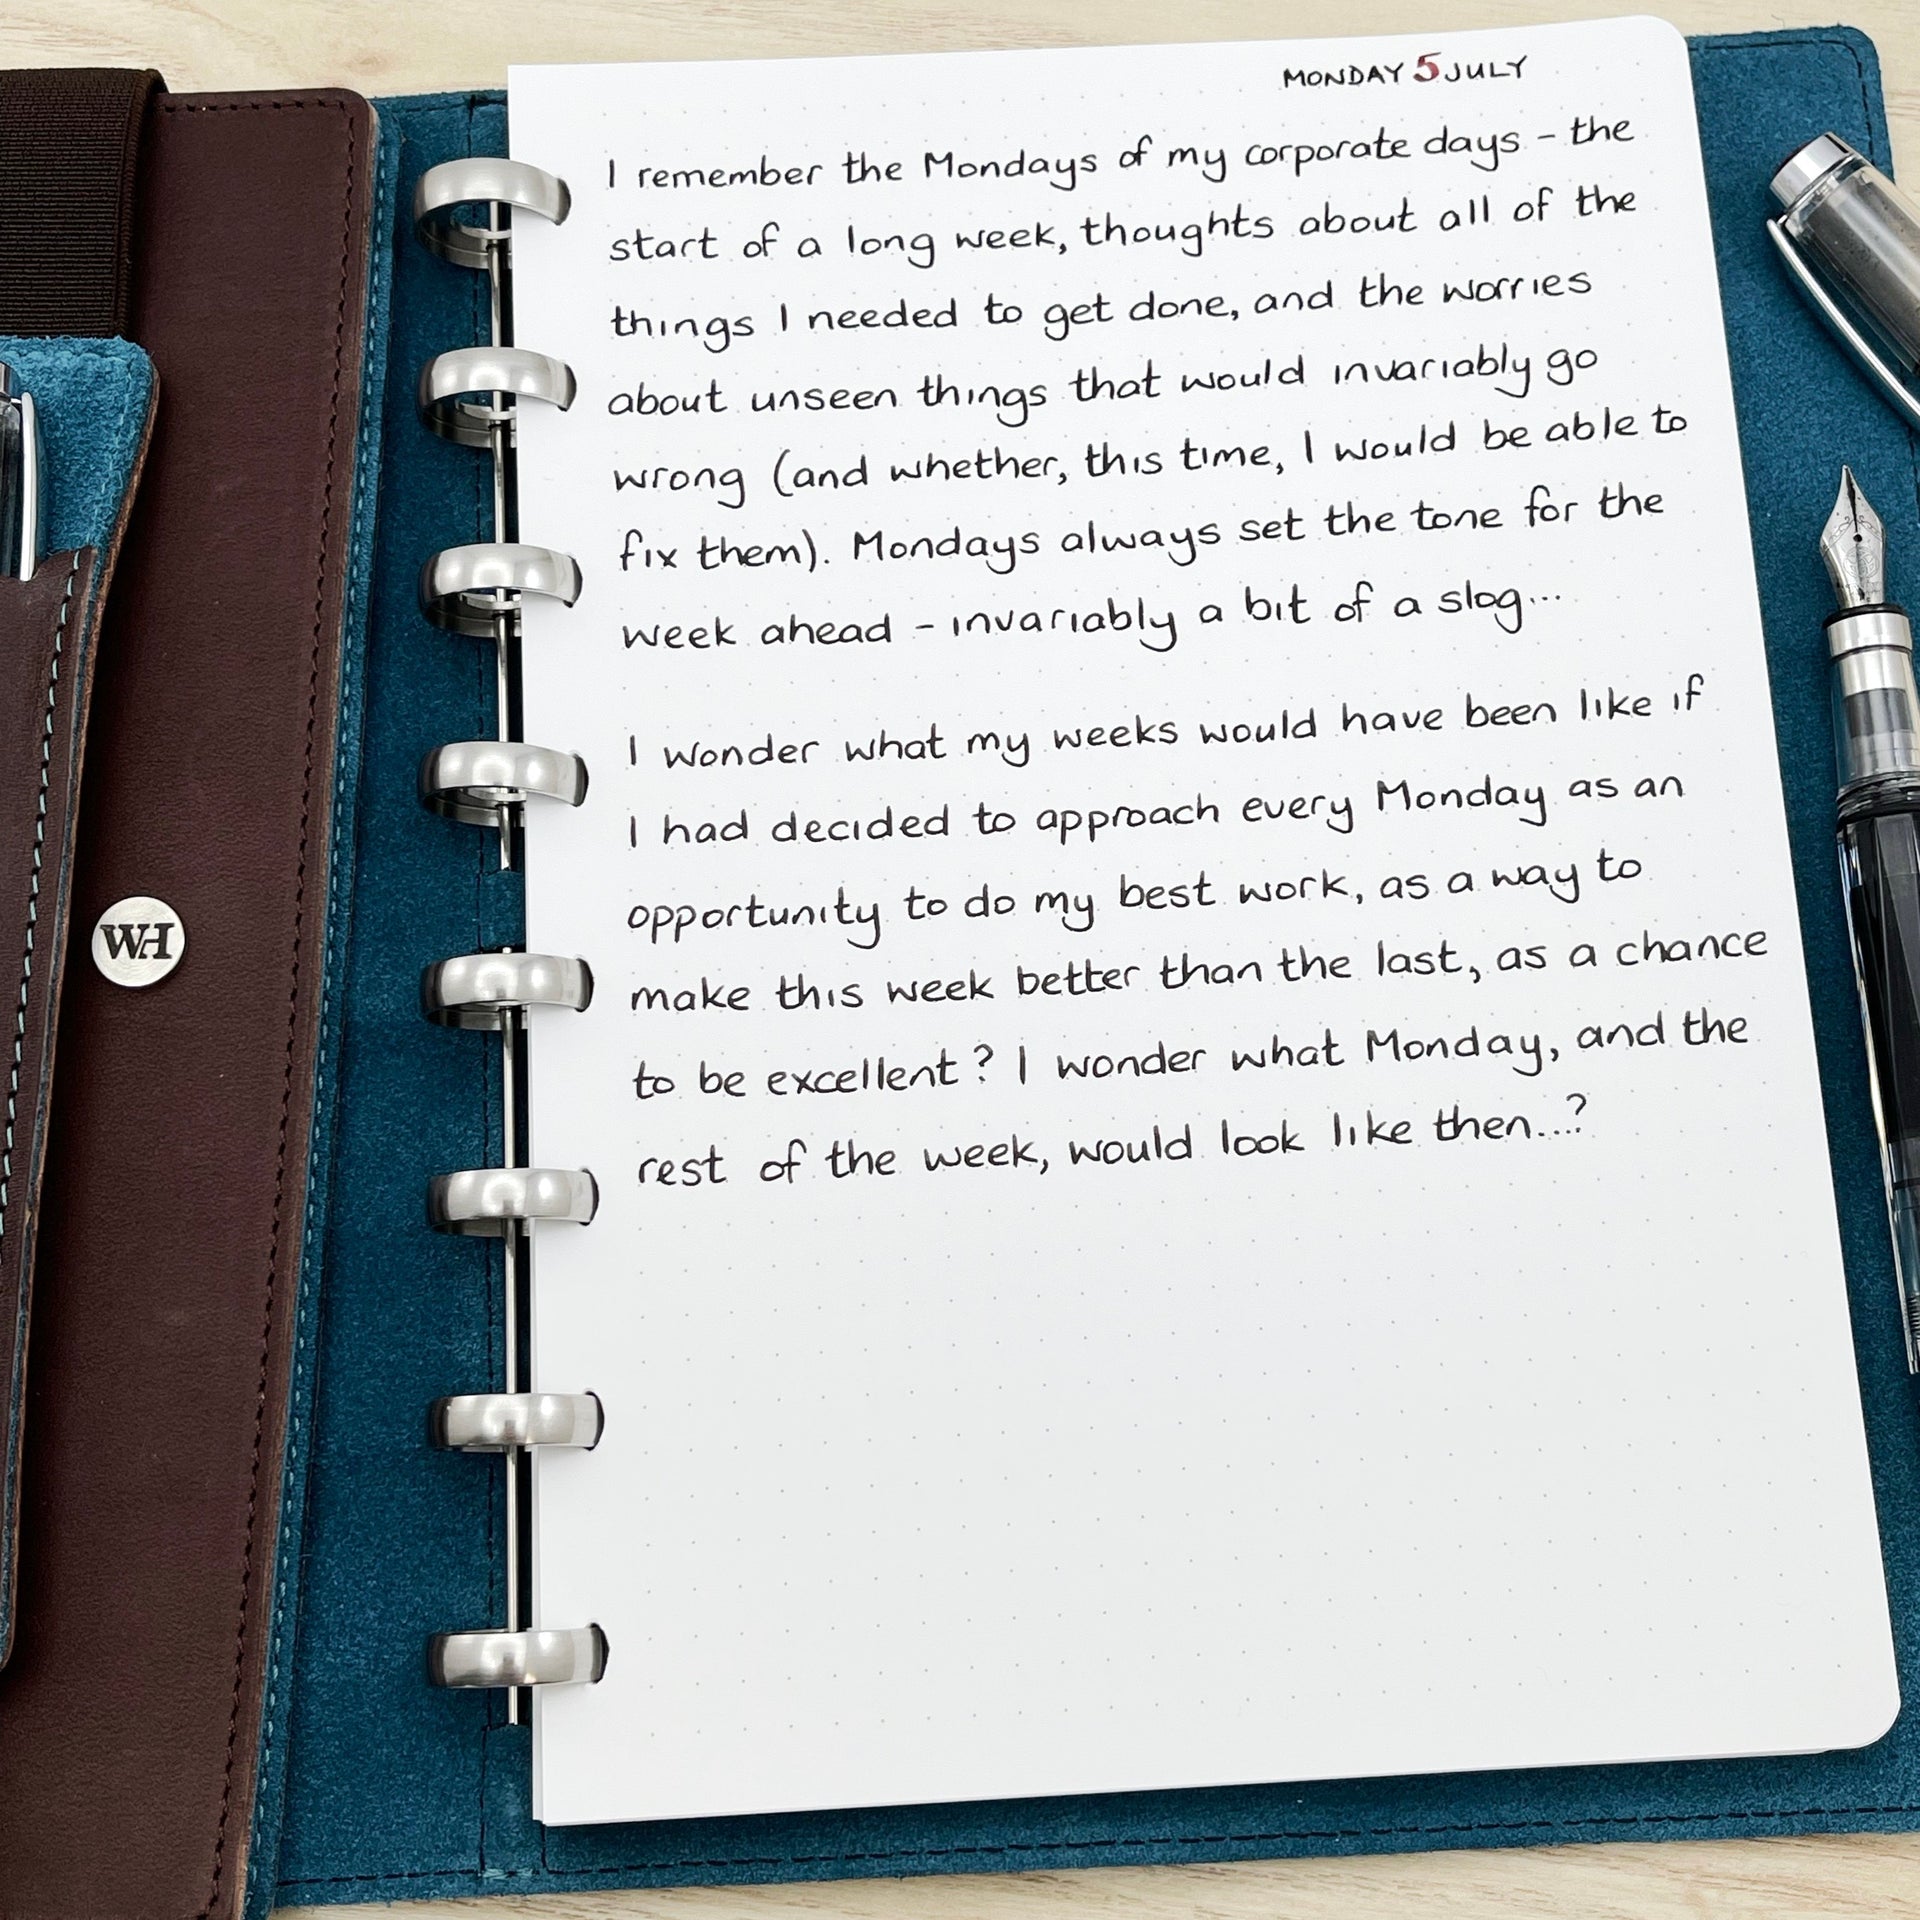 MONDAY 5 JULY
I remember the Mondays of my corporate days - the
start of a long week, thoughts about all of the
things I needed to get done, and the worries
about unseen things that would invariably go
wrong (and whether, this time, I would be able to
fix them). Mondays always set the tone for the
week ahead - invariably a bit of a slog...
I wonder what my weeks would have been like if
I had decided to approach every Monday as an
opportunity to do my best work, as a way to
make this week better than the last, as a chance
to be excellent? I wonder what Monday, and the
rest of the week, would look like then...?
WH